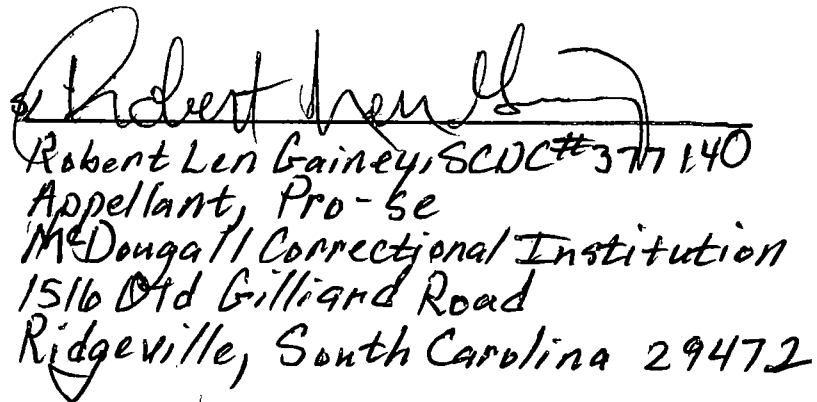 s/ Robert Len Gainey
Robert Len Gainey, SCDC#377140
Appellant, Pro-se
McDougall Correctional Institution
1516 Old Gilliard Road
Ridgeville, South Carolina 29472